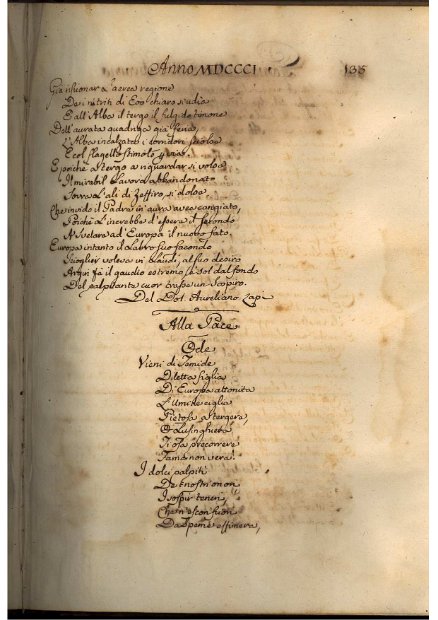 Anno MDCCCI 135
Già risuonar l'aerea regione
De'i nitriti di Eoo chiaro s'udia
Dall'Alba il tergo il fulg. do timone
Dell'aurata quadriga già feria,
L'Alba incalzata i corridori
E col flagello stimolo
E poichè a tergo a riguardar si volse
Il mirabil lavoro abbandonato
Sovra l'ali di Zeffiro si dolse
Che invido il Padre in aura avea cangiato,
Poichè l'increbbe d'essere il secondo
A svelare ad Europa il nuovo fato.
Europa intanto il labro suo facondo
Scioglier voleva in laudi, al suo desiro
Argin fà il gaudio estremo, e sol dal fondo
Del palpitante cuor trasse un sospiro.
Del Dot. Aureliano
Alla Pace
Ode
Vieni di Temide
Diletta figlia
D'Europa attonita
L'umide ciglia
Pietosa a tergere,
O lusinghiera
Ti osa precorrere
Fama non vera?
I dolci palpiti
De' nostri
I sospir teneri,
Ch'escon fuori
Da speme effimera,